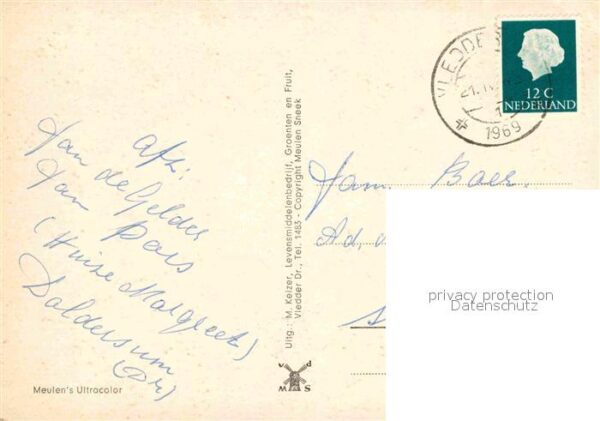 Afz:
Jan de Gelder
Jan Bars
(Huize Margreet)
Doldersum
(Dr)
Meulen's Ultracolor
Uitg.: M. Keizer, Levensmiddelenbedrijf, Groenten en Fruit,
Vledder Dr., Tel. 1483 - Copyright Meulen Sneek
v d
M S
VLEDDE
21. IV.
1969
12 C
NEDERLAND
Fam. Baer.
privacy protection
Datenschutz